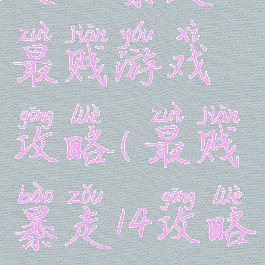 zuì jiàn yóu xì
最贱游戏
gōng lüè zuì jiàn
攻略(最贱
bào zǒu gōng lüè
暴走14攻略